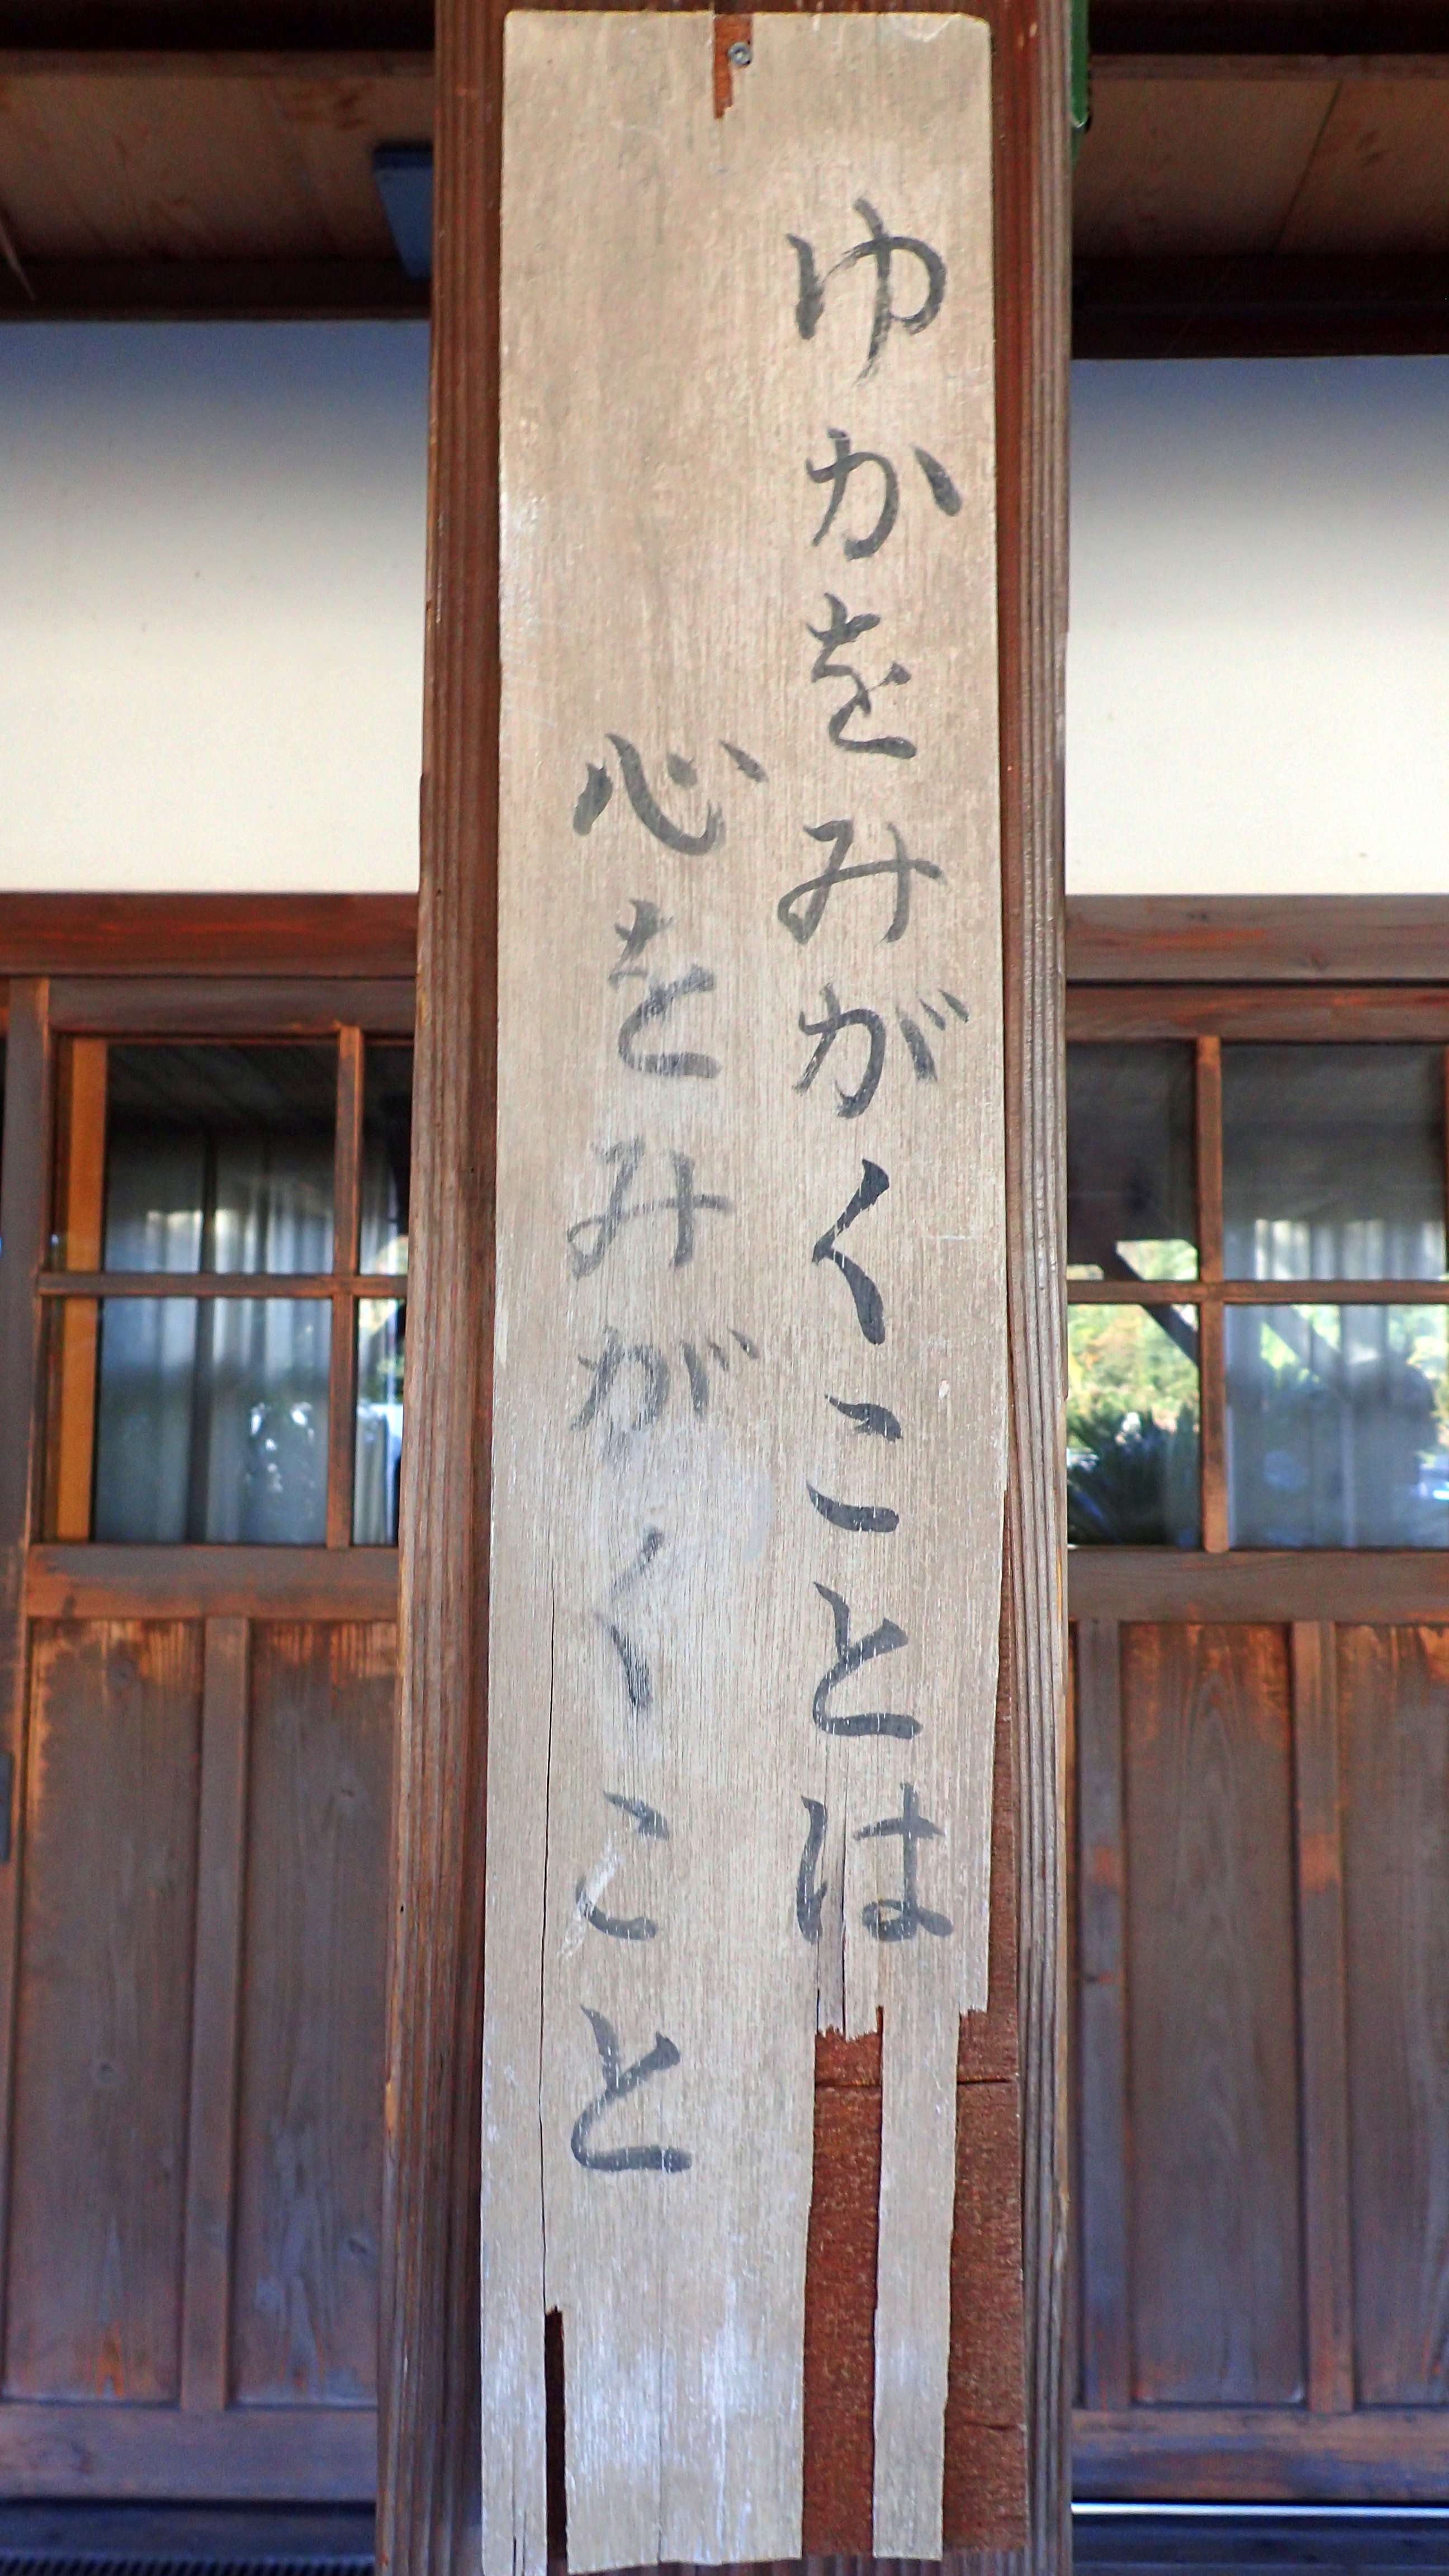 ゆかをみがくことは
心をみがくこと